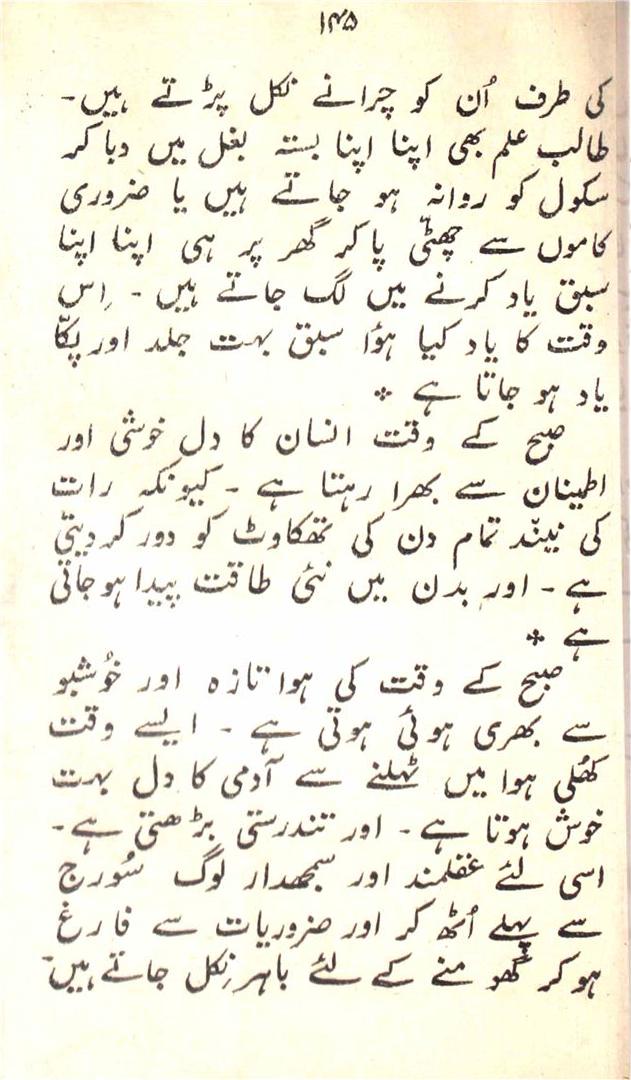 ۱۴۵
کی طرف اُن کو چرانے نکل پڑتے ہیں۔
طالب علم بھی اپنا اپنا بستہ بغل میں دبا کر
سکول کو روانہ ہو جاتے ہیں یا ضروری
کاموں سے چھٹّی پا کر گھر پر ہی اپنا اپنا
سبق یاد کرنے میں لگ جاتے ہیں ۔ اِس
وقت کا یاد کیا ہؤا سبق بہت جلد اور پکّا
یاد ہو جاتا ہے *
صبح کے وقت انسان کا دل خوشی اور
اطمینان سے بھرا رہتا ہے ۔ کیونکہ رات
کی نیند تمام دن کی تھکاوٹ کو دور کر دیتی
ہے ۔ اور بدن میں نئی طاقت پیدا ہو جاتی
ہے *
صبح کے وقت کی ہوا تازہ اور خُوشبو
سے بھری ہوئی ہوتی ہے ۔ ایسے وقت
کھُلی ہوا میں ٹہلنے سے آدمی کا دل بہت
خوش ہوتا ہے ۔ اور تندرستی بڑھتی ہے ۔
اسی لئے عقلمند اور سمجھدار لوگ سُورج
سے پہلے اُٹھ کر اور ضروریات سے فارغ
ہو کر گھومنے کے لئے باہر نِکل جاتے ہیں ۔